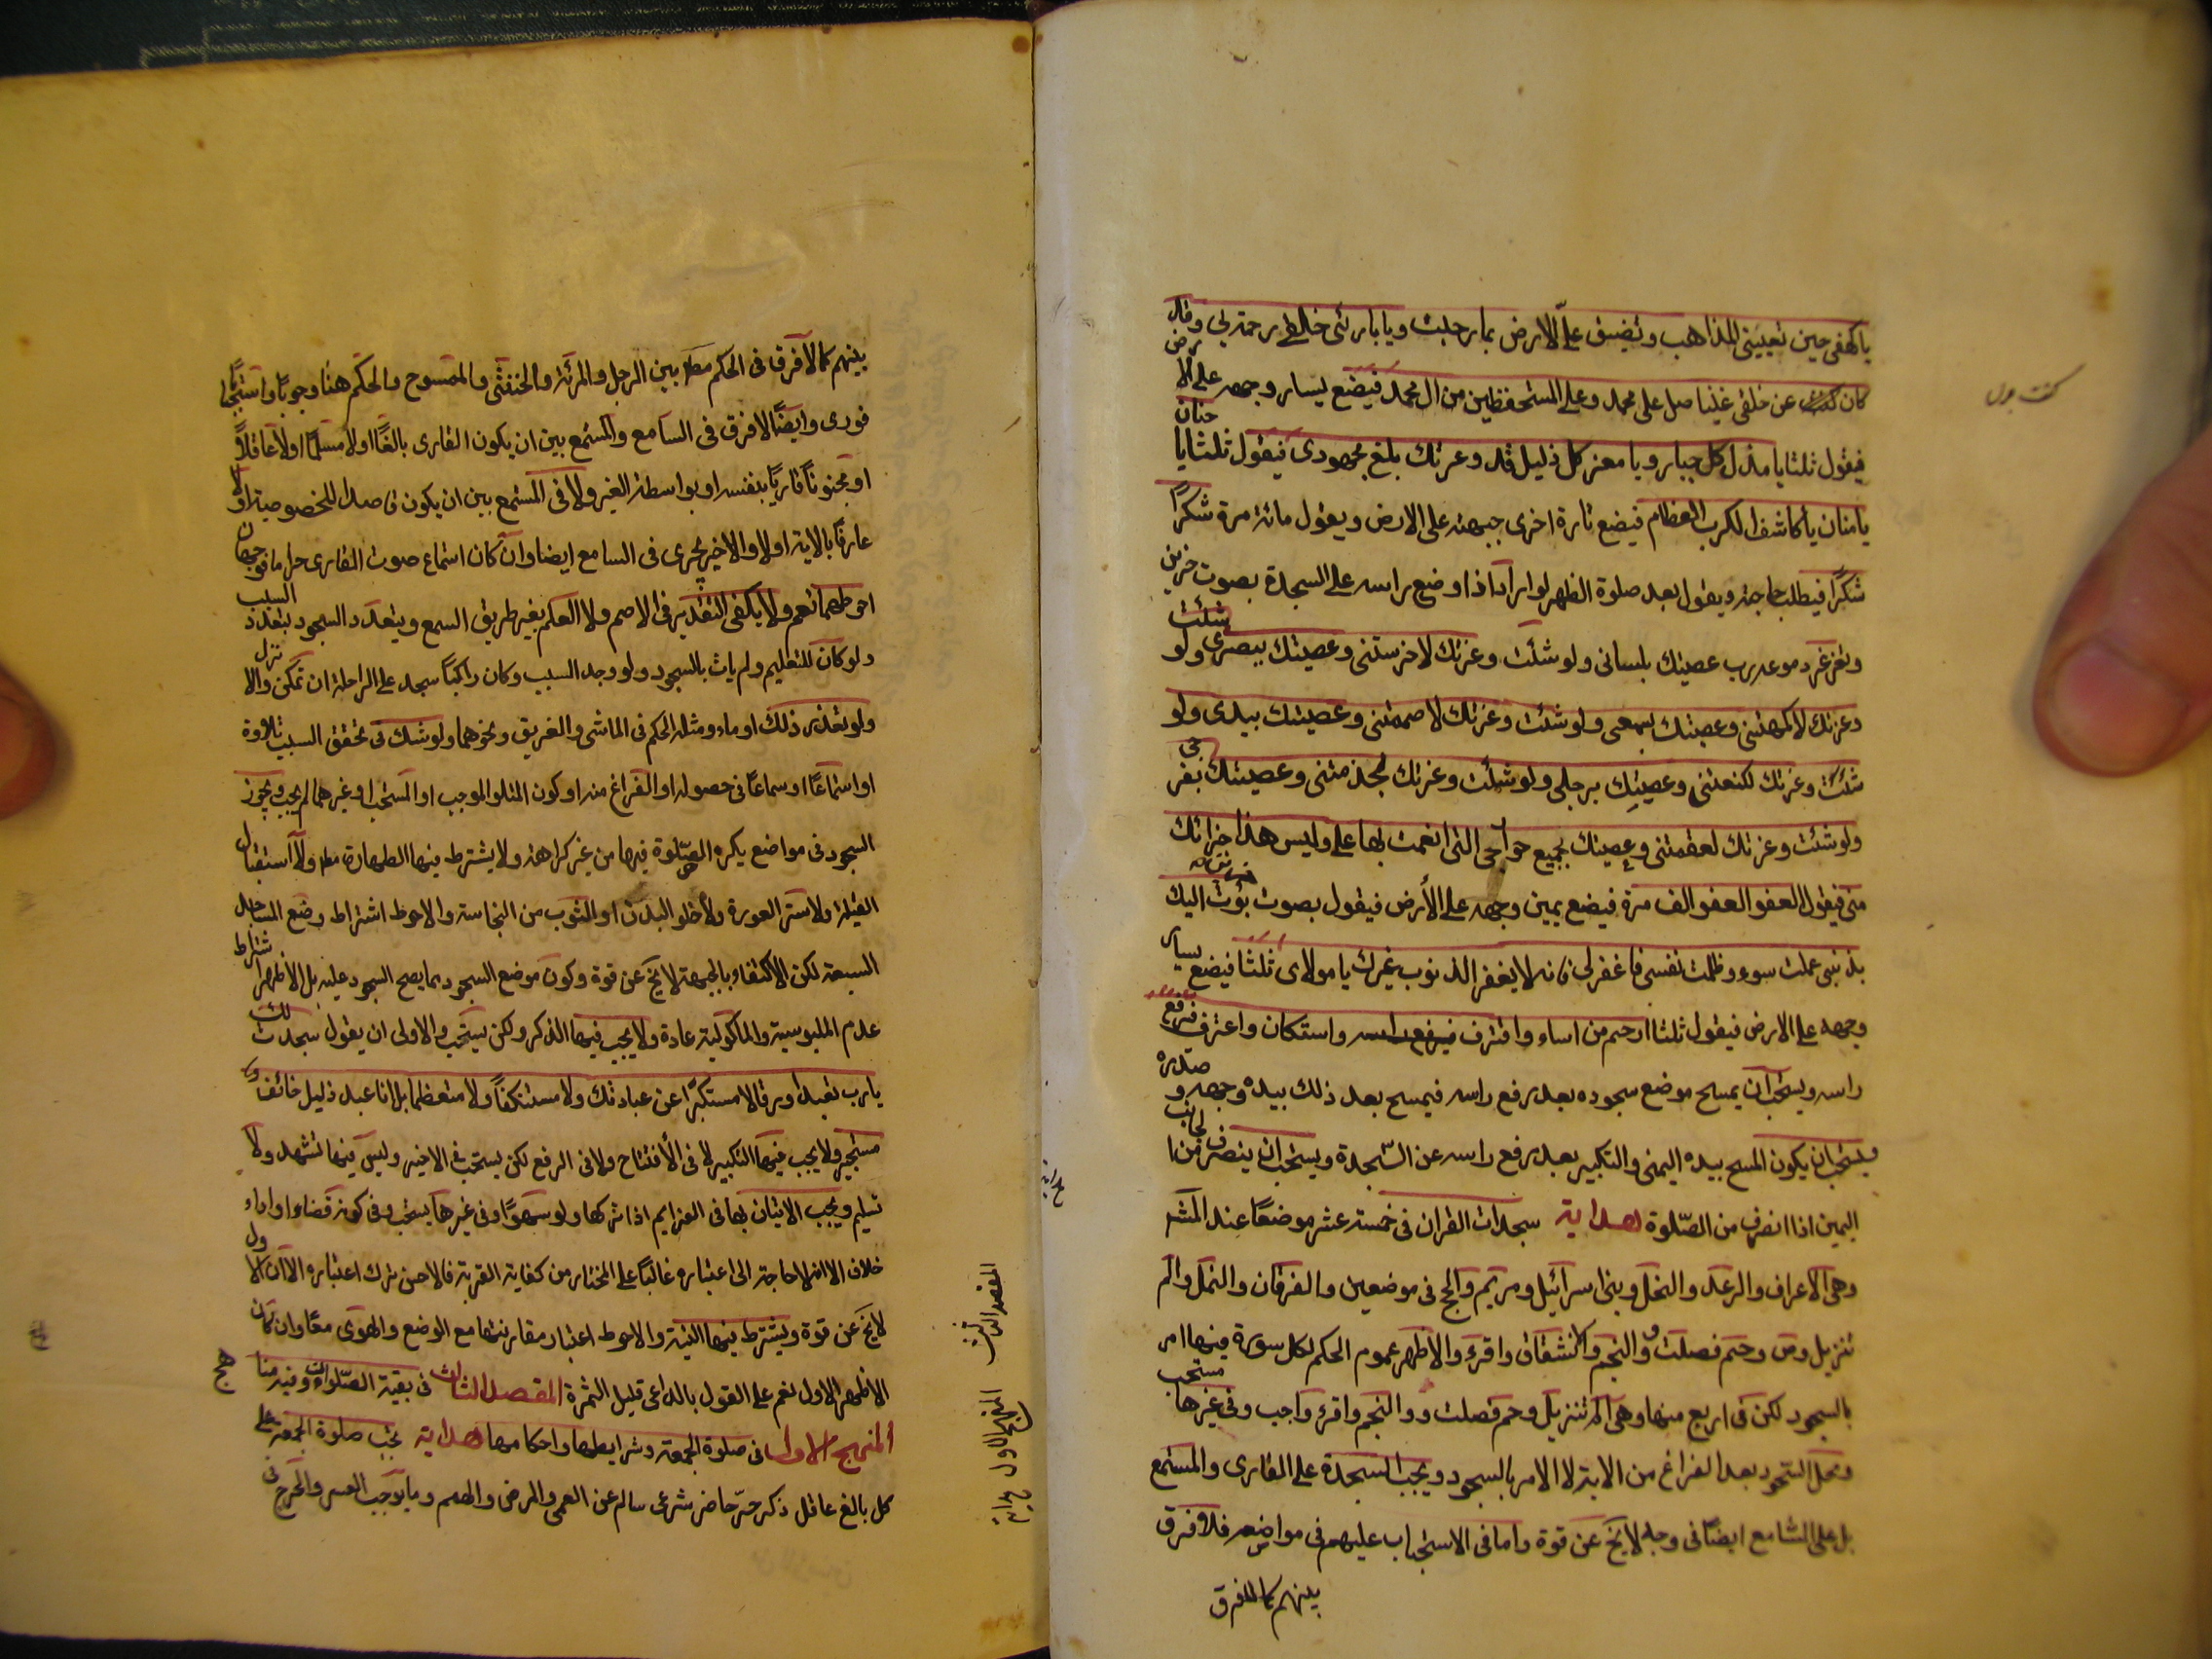 يا كهفى حين تعيينى المذاهب وتضيق علىّ الارض بما رحبت ويا بارئى خلقى رحمة لى وقد
كان عن خلقى غنيا صل على محمد وعلى المستحفظين من ال محمد فيضع يسار وجهه على الارض
فيقول ثلثا يا مذل كل جبار ويا معز كل ذليل قد وعزتك بلغ مجهودى فيقول ثلثا يا حنان
يا منان يا كاشف الكرب العظام فيضع تارة اخرى جبهته على الارض ويقول مائة مرة شكرًا
شكرًا فيطلب حاجته ويقول بعد صلوة الظهر لو اراد اذا وضع راسه على السجدة بصوت حزين
وتغرغر دموعه رب عصيتك بلسانى ولو شئت وعزتك لاخرستنى وعصيتك ببصرى ولو شئت
وعزتك لاكمهتنى وعصيتك بسمعى ولو شئت وعزتك لاصممتنى وعصيتك بيدى ولو
شئت وعزتك لكنعتنى وعصيتك برجلى ولو شئت وعزتك لجذمتنى وعصيتك بفرجى
ولو شئت وعزتك لعقمتنى وعصيتك بجميع جوارحى التى انعمت بها على وليس هذا جزائك
منى فيقول العفو العفو الف مرة فيضع يمين وجهه على الأرض فيقول بصوت بؤت اليك
بذنبى عملت سوء وظلمت نفسى فاغفر لى فانه لا يغفر الذنوب غيرك يا مولاى ثلثا فيضع يسار
وجهه على الارض فيقول ثلثا ارحم من اساء واقترف واستكان واعترف فيرفع
راسه ويستحب ان يمسح موضع سجوده بعد رفع راسه فيمسح بعد ذلك بيده وجهه و صدره
ويستحب ان يكون المسح بيده اليمنى والتكبير بعد رفع راسه عن السّجدة ويستحب ان ينصرف من الجانب
اليمين اذا انصرف من الصّلوة هداية سجدات القران فى خمسة عشر موضعًا عند المشهور
وهى الاعراف والرعد والنحل وبنى اسرائيل ومريم والحج فى موضعين والفرقان والنمل والم
تنزيل وص وحم فصلت والنجم والانشقاق واقرء والاظهر عموم الحكم لكل سورة فيها امر
بالسجود لكن فى اربع منها وهى الم تنزيل وحم فصلت والنجم واقرء واجب وفى غيرها مستحب
ومحل السّجود بعد الفراغ من الاية لا الامر بالسجود ويجب السجدة على القارى والمستمع
بل على السامع ايضًا فى وجه لا يخ عن قوة واما فى الاستحباب عليهم فى مواضعه فلا فرق
بينهم كما لا فرق
هداية
بينهم كما لا فرق فى الحكم مط بين الرجل والمرئة والخنثى والممسوح والحكم هنا وجوبًا واستحبابًا
فورى وايضًا لا فرق فى السامع والمستمع بين ان يكون القارى بالغًا اولا مسلمًا اولا عاقلًا
او مجنونًا قاريًا بنفسه او بواسطة الغير ولا فى المستمع بين ان يكون قاصدا للخصوصية اولا
عارفًا بالاية اولا والاخير يجرى فى السامع ايضا وان كان استماع صوت القارى
احوطهما نعم ولا يكفى التقدير فى الاصم ولا العلم بغير طريق السمع ويتعدد السجود بتعدد السبب
ولو كان للتعليم ولم يات بالسجود ولو وجد السبب وكان راكبًا سجد على الراحلة ان تمكن والا نزل
ولو تعذر ذلك اوماء ومثله الحكم فى الماشى والغريق ونحوهما ولو شك فى تحقق السبب تلاوة
او استماعًا او سماعًا فى حصوله او الفراغ منه او كون المتلو الموجب او المستحب او غيرهما لم يجب ويجوز
السجود فى مواضع يكره الصّلوة فيها من غير كراهة ولا يشترط فيها الطهارة مط ولا استقبال
القبلة ولا ستر العورة ولا خلو البدن او الثوب من النجاسة والاحوط اشتراط وضع المساجد
السبعة لكن الاكتفاء بالجبهة لا يخ عن قوة وكون موضع السجود مما يصح السجود عليه بل الاظهر اشتراط
عدم الملبوسية والماكولية عادة ولا يجب فيها الذكر ولكن يستحب والاولى ان يقول سجدت لك
يا رب تعبدا ورقا لا مستكبرًا عن عبادتك ولا مستنكفًا ولا متعظما بل انا عبد ذليل خائف
مستجير ولا يجب فيها التكبير لا فى الأفتتاح ولا فى الرفع لكن يستحب فى الاخير وليس فيها تشهد ولا
تسليم ويجب الاتيان بها فى العزايم اذا تركها ولو سهوًا وفى غيرها يستحب وفى كونه قضاء او اداء
خلاف الا انه لا حاجة الى اعتباره غالبًا على المختار من كفاية القربة فالاحسن ترك اعتباره الا ان الاول
لا يخ عن قوة ويشترط فيها النية والاحوط اعتبار مقارنتها مع الوضع والهوى معًا وان كان
الاظهر الاول نعم على القول بالداعى قليل الثمرة المقصد الثالث فى بقية الصّلوات وفيه مناهج
المنهج الاول فى صلوة الجمعة وشرايطها واحكامها هداية تجب صلوة الجمعة على
كل بالغ عاقل ذكر حرّ حاضر شرعى سالم عن العمى والمرض والهم وما يوجب العسر والحرج فى
المقصد الثالث
المنهج الاول هداية